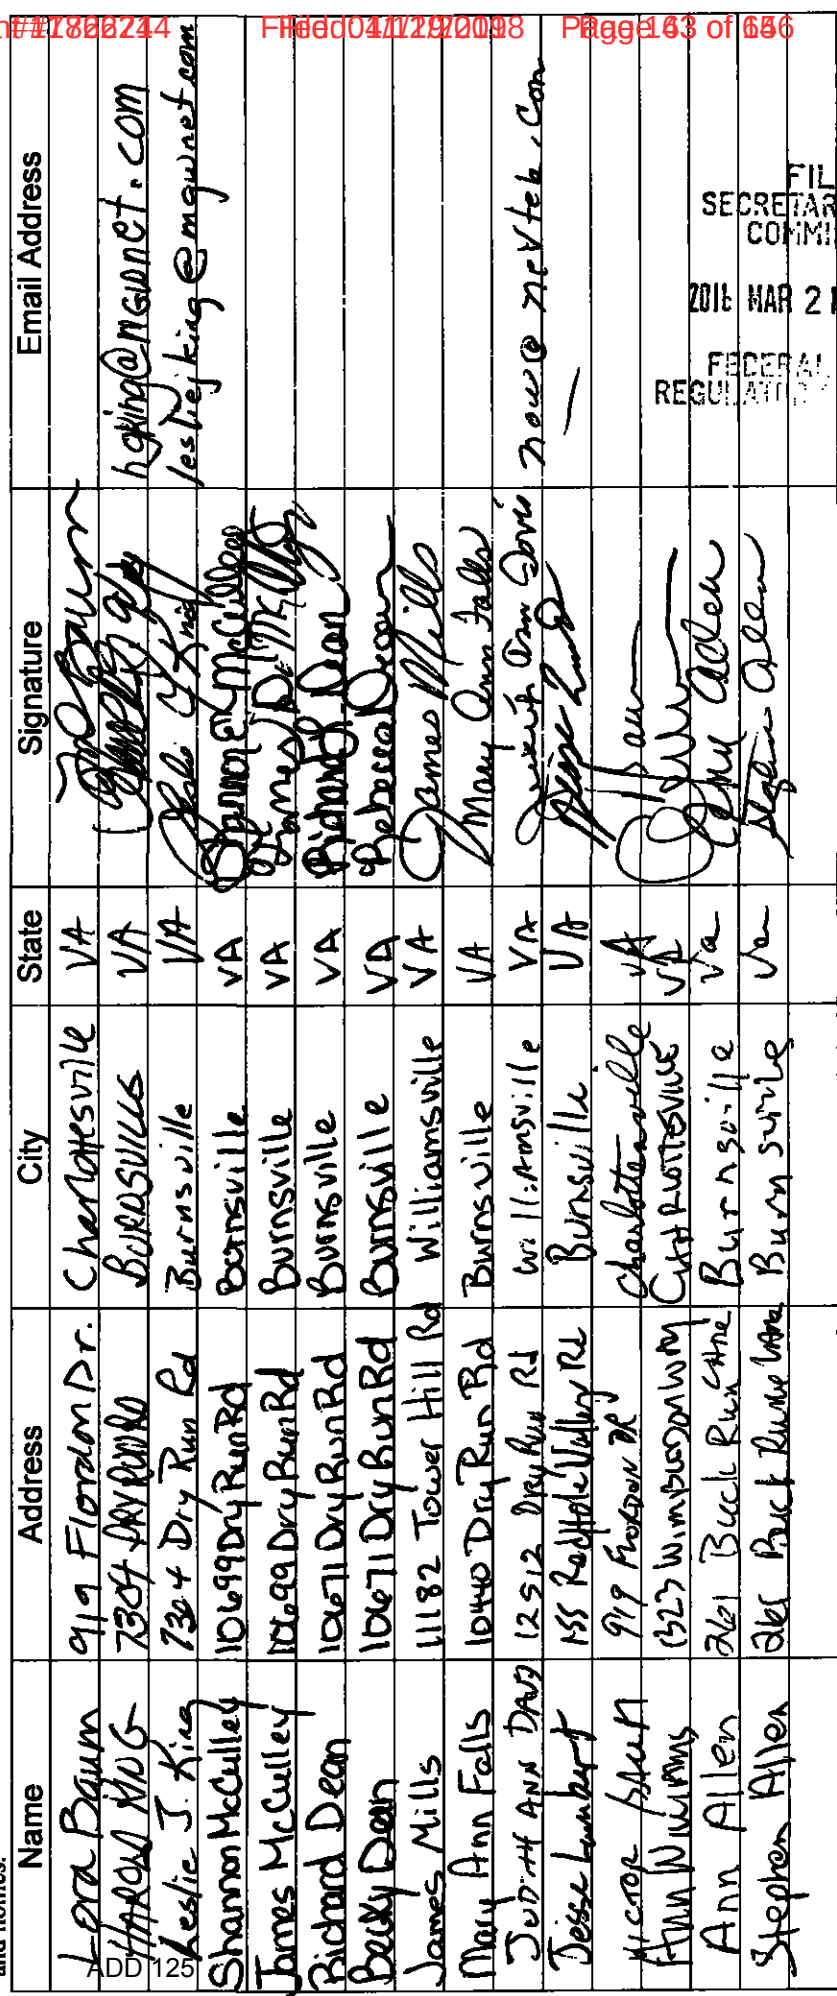 and homes.
Name Address City State Signature Email Address
Lora Baum 919 Flordon Dr. Charlottesville VA
HAROLD KING 7304 DRY RUN RD BURNSVILLE VA hgking@mgwnet.com
Leslie J. King 7304 Dry Run Rd Burnsville VA Leslie J King lesliejking@mgwnet.com
Shannon McCulley 10699 Dry Run Rd Burnsville VA Shannon E McCulley
James McCulley 10699 Dry Run Rd Burnsville VA James D. McCulley
Richard Dean 10671 Dry Run Rd Burnsville VA Richard L. Dean
Becky Dean 10671 Dry Run Rd Burnsville VA Rebecca Dean
James Mills 11182 Tower Hill Rd Williamsville VA James Mills
Mary Ann Falls 10440 Dry Run Rd Burnsville VA Mary Ann Falls
JUDITH ANN DAVIS 12512 Dry Run Rd Williamsville VA Judith Ann Davis now@nevtek.com
Jesse Lambert 155 Red Hole Valley Rd Burnsville VA —
VICTOR BAUM 919 FLORDON DR Charlottesville VA
Ann Williams 1323 WIMBLEDON WAY CHARLOTTESVILLE VA
Ann Allen 261 Buck Run Lane Burnsville Va Ann Allen
Stephen Allen 261 Buck Run Lane Burnsville Va Stephen Allen
FIL
SECRETAR
COMMI
MAR 21
FEDERAL
REGULATORY
ADD 125
of